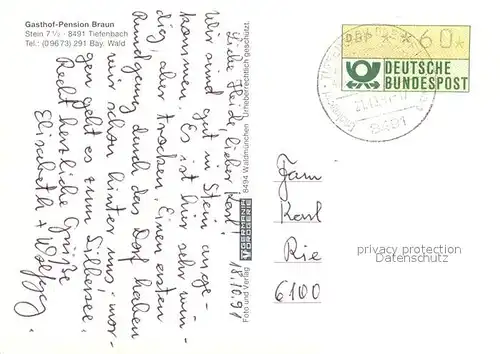 Gasthof-Pension Braun
Stein 7 1/2 · 8491 Tiefenbach
Tel.: (09673) 291 Bay. Wald
Liebe Heide, lieber Karl!
Wir sind gut in Stein ange-
kommen. Es ist hier sehr win-
dig, aber trocken. Einen ersten
Rundgang durch das Dorf haben
wir schon hinter uns, mor-
gen geht es zum Silbersee.
Recht herzliche Grüße
Elisabeth + Wolfgg.
18.10.91
Foto und Verlag
8494 Waldmünchen Urheberrechtlich geschützt.
DBP
60
DEUTSCHE
BUNDESPOST
8491
Fam
Karl
Rie
6100
privacy protection
Datenschutz